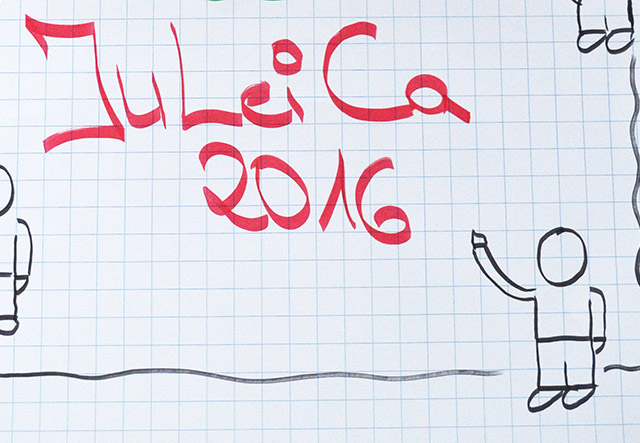 JuLeiCa
2016